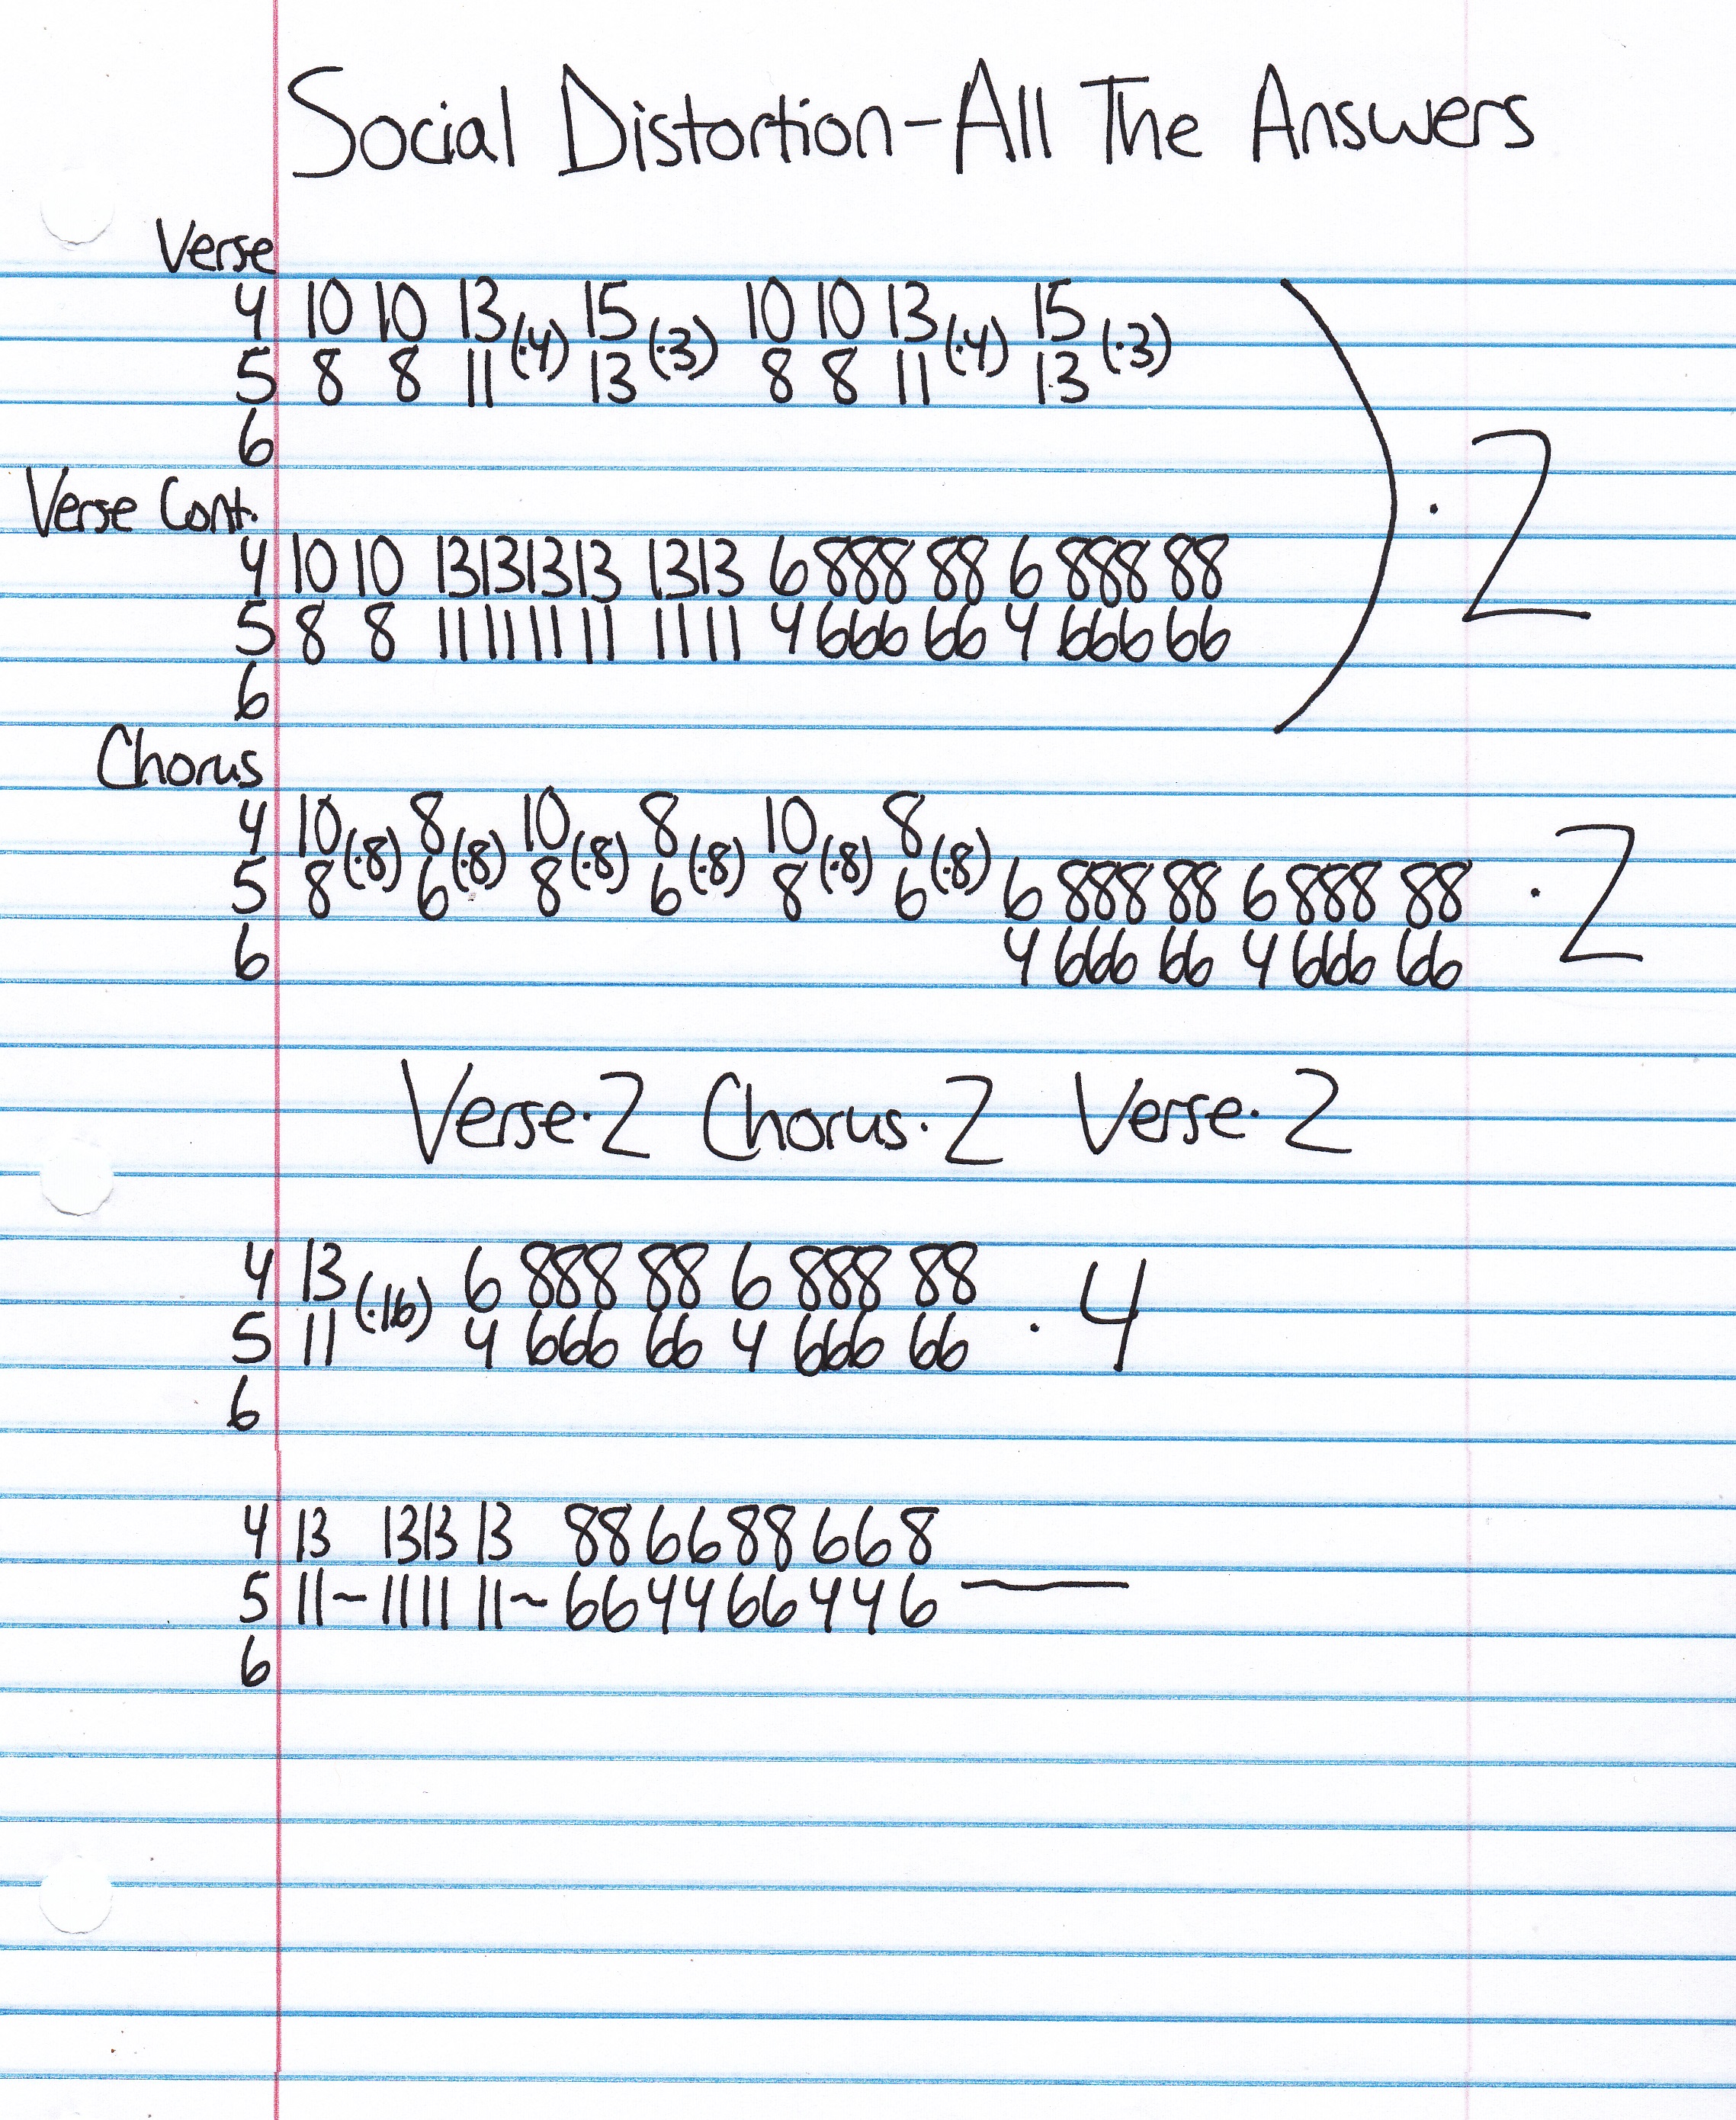 Social Distortion-All The Answers
Verse
4 10 10 13 (·4) 15 (·3) 10 10 13 (·4) 15 (·3)
5 8 8 11 13 8 8 11 13
6
) · 2
Verse Cont.
4 10 10 13131313 1313 6 888 88 6 888 88
5 8 8 11111111 1111 4 666 66 4 666 66
6
Chorus
4 10 (·8) 8 (·8) 10 (·8) 8 (·8) 10 (·8) 8 (·8)
5 8 6 8 6 8 6 6 888 88 6 888 88 · 2
6 4 666 66 4 666 66
Verse·2 Chorus·2 Verse·2
4 13 (·16) 6 888 88 6 888 88 · 4
5 11 4 666 66 4 666 66
6
4 13 1313 13 886688668
5 11~1111 11~664466446 —
6